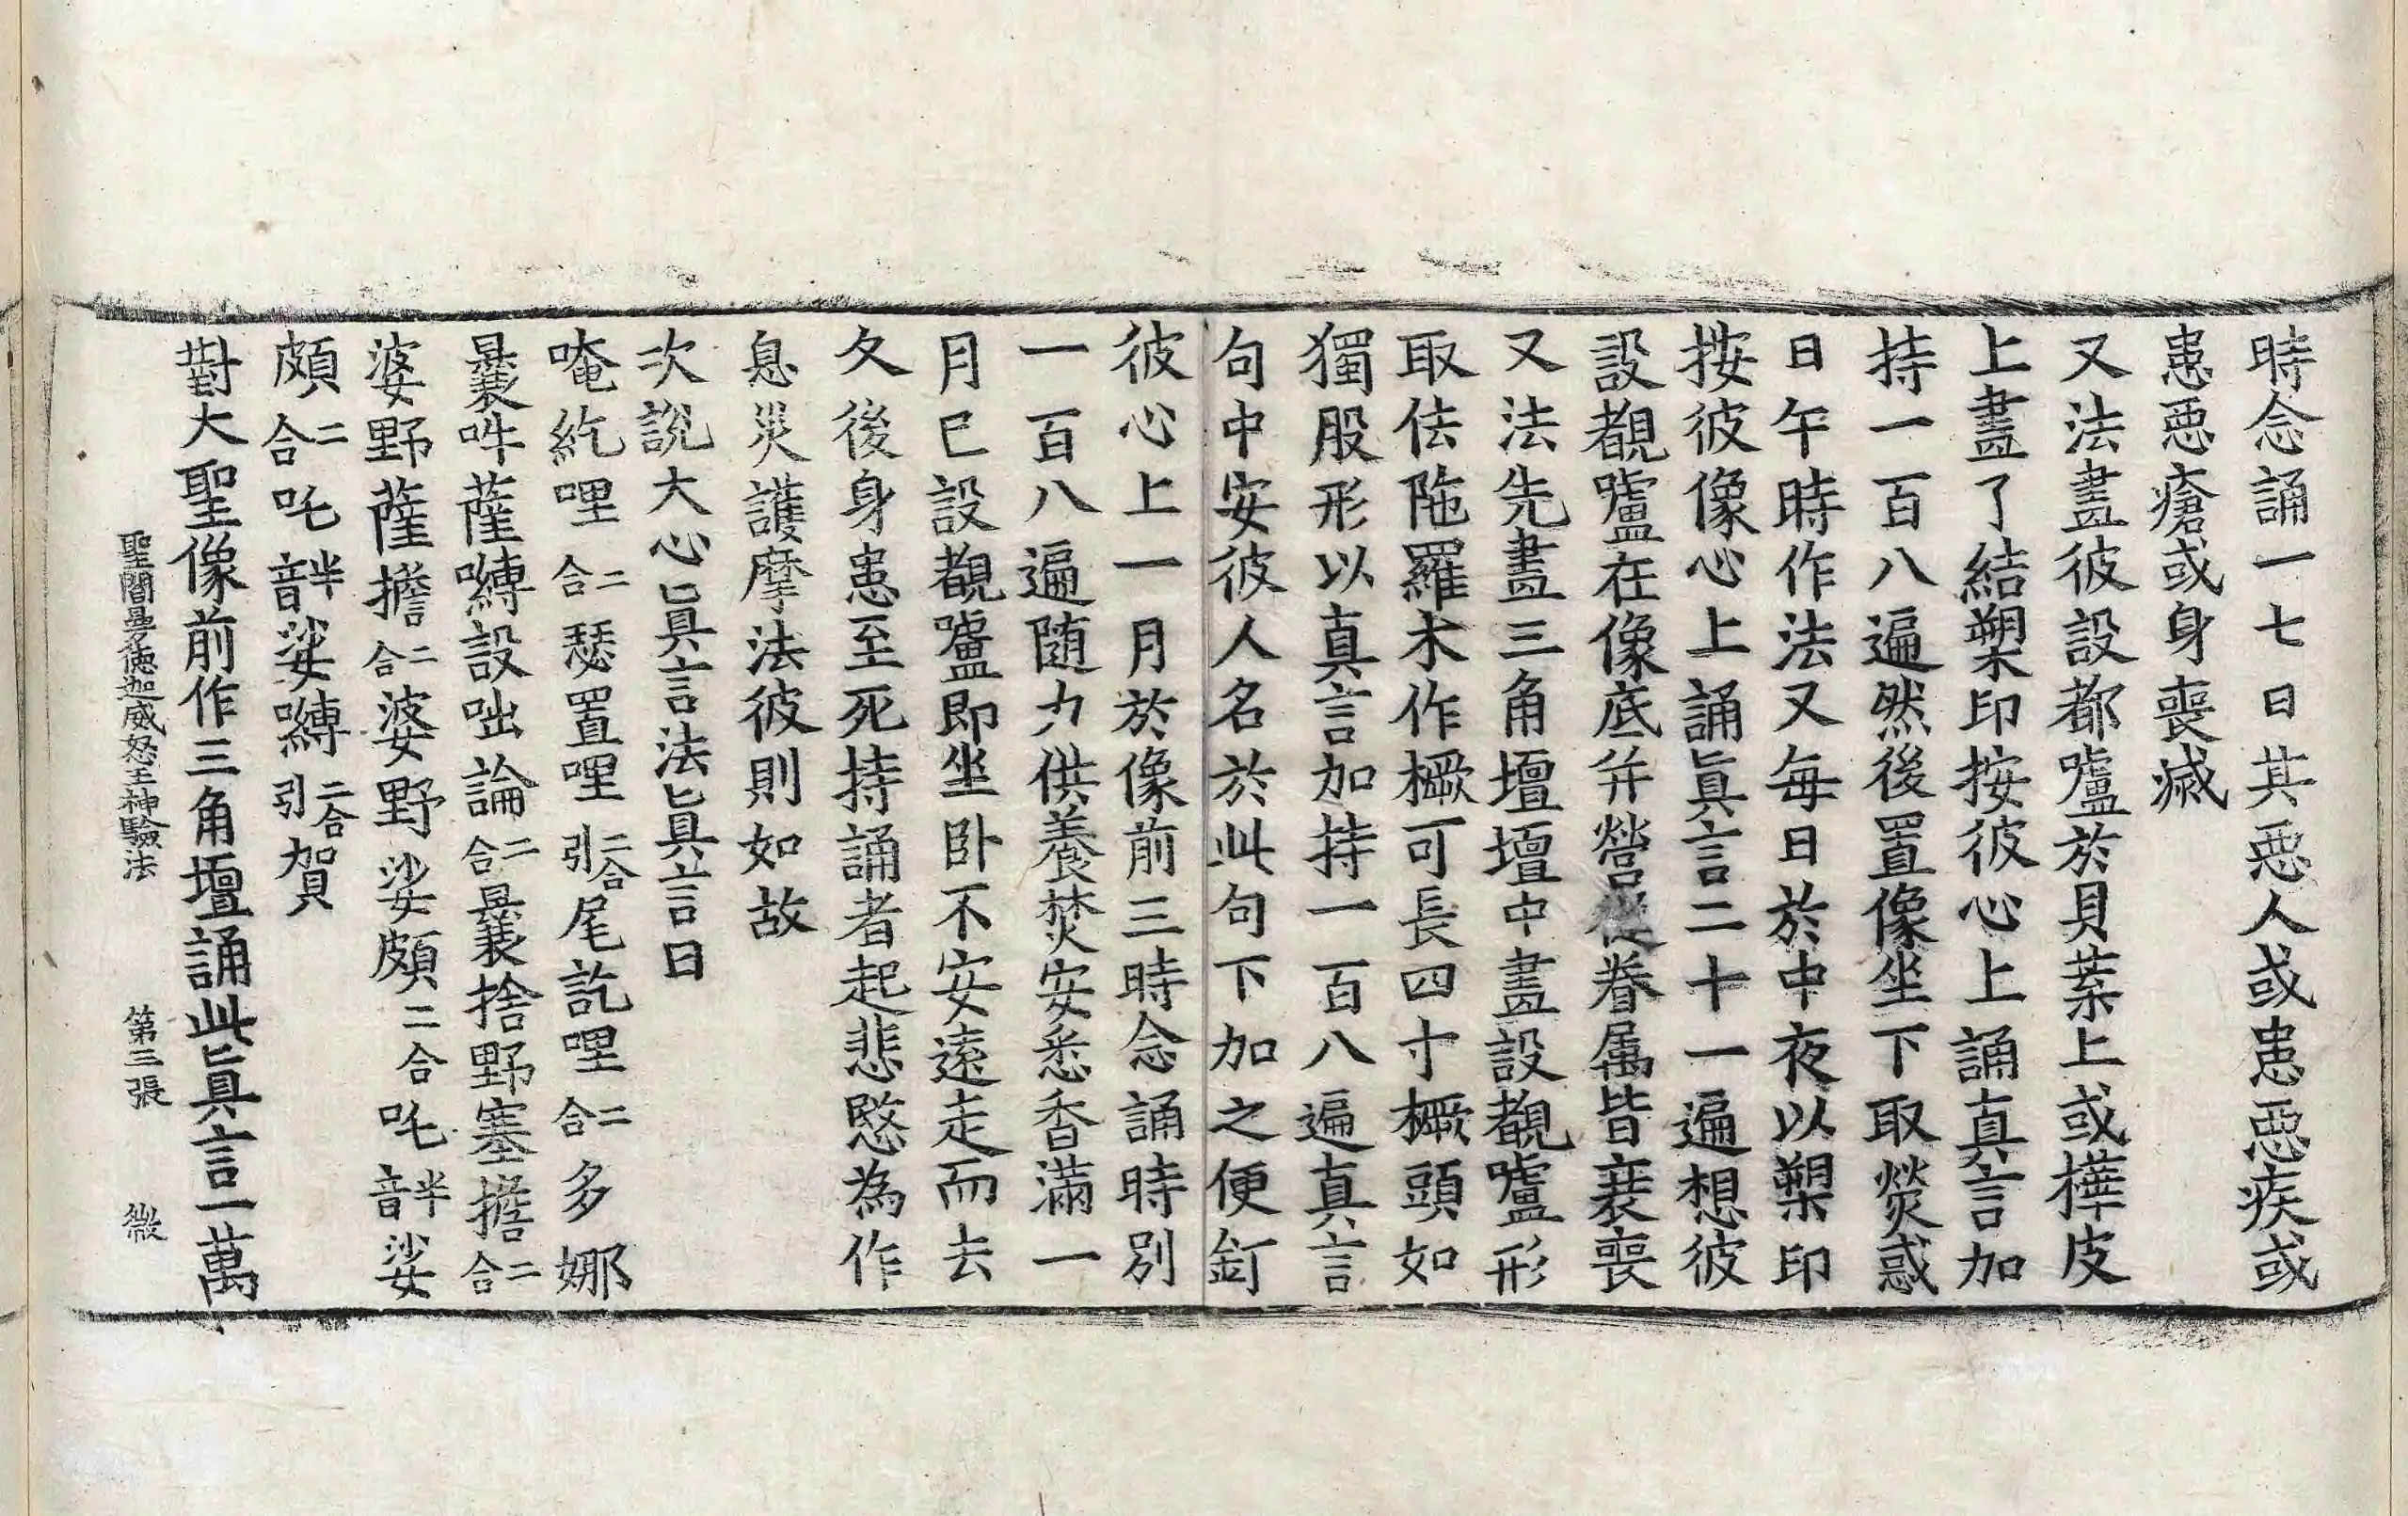 時念誦一七日其惡人或患惡疾或
患惡瘡或身喪滅
又法畫彼設都嚧於貝葉上或樺皮
上畫了結槊印按彼心上誦真言加
持一百八遍然後置像坐下取熒惑
日午時作法又每日於中夜以槊印
按彼像心上誦真言二十一遍想彼
設覩嚧在像底并營從眷属皆衰喪
又法先畫三角壇壇中畫設覩嚧形
取佉陁羅木作橛可長四寸橛頭如
獨股形以真言加持一百八遍真言
句中安彼人名於此句下加之便釘
彼心上一月於像前三時念誦時別
一百八遍随力供養焚安悉香滿一
月已設覩嚧即坐卧不安遠走而去
久後身患至死持誦者起悲愍為作
息災護摩法彼則如故
次說大心真言法真言曰
唵紇哩二合瑟置哩二合引尾訖哩二合多娜
曩吽薩嚩設咄論二合曩捨野塞擔二合
婆野薩擔二合婆野娑頗二合吒半音娑
頗二合吒半音娑嚩二合引賀
對大聖像前作三角壇誦此真言一萬
聖閻曼德迦威怒王神驗法　第三張　微